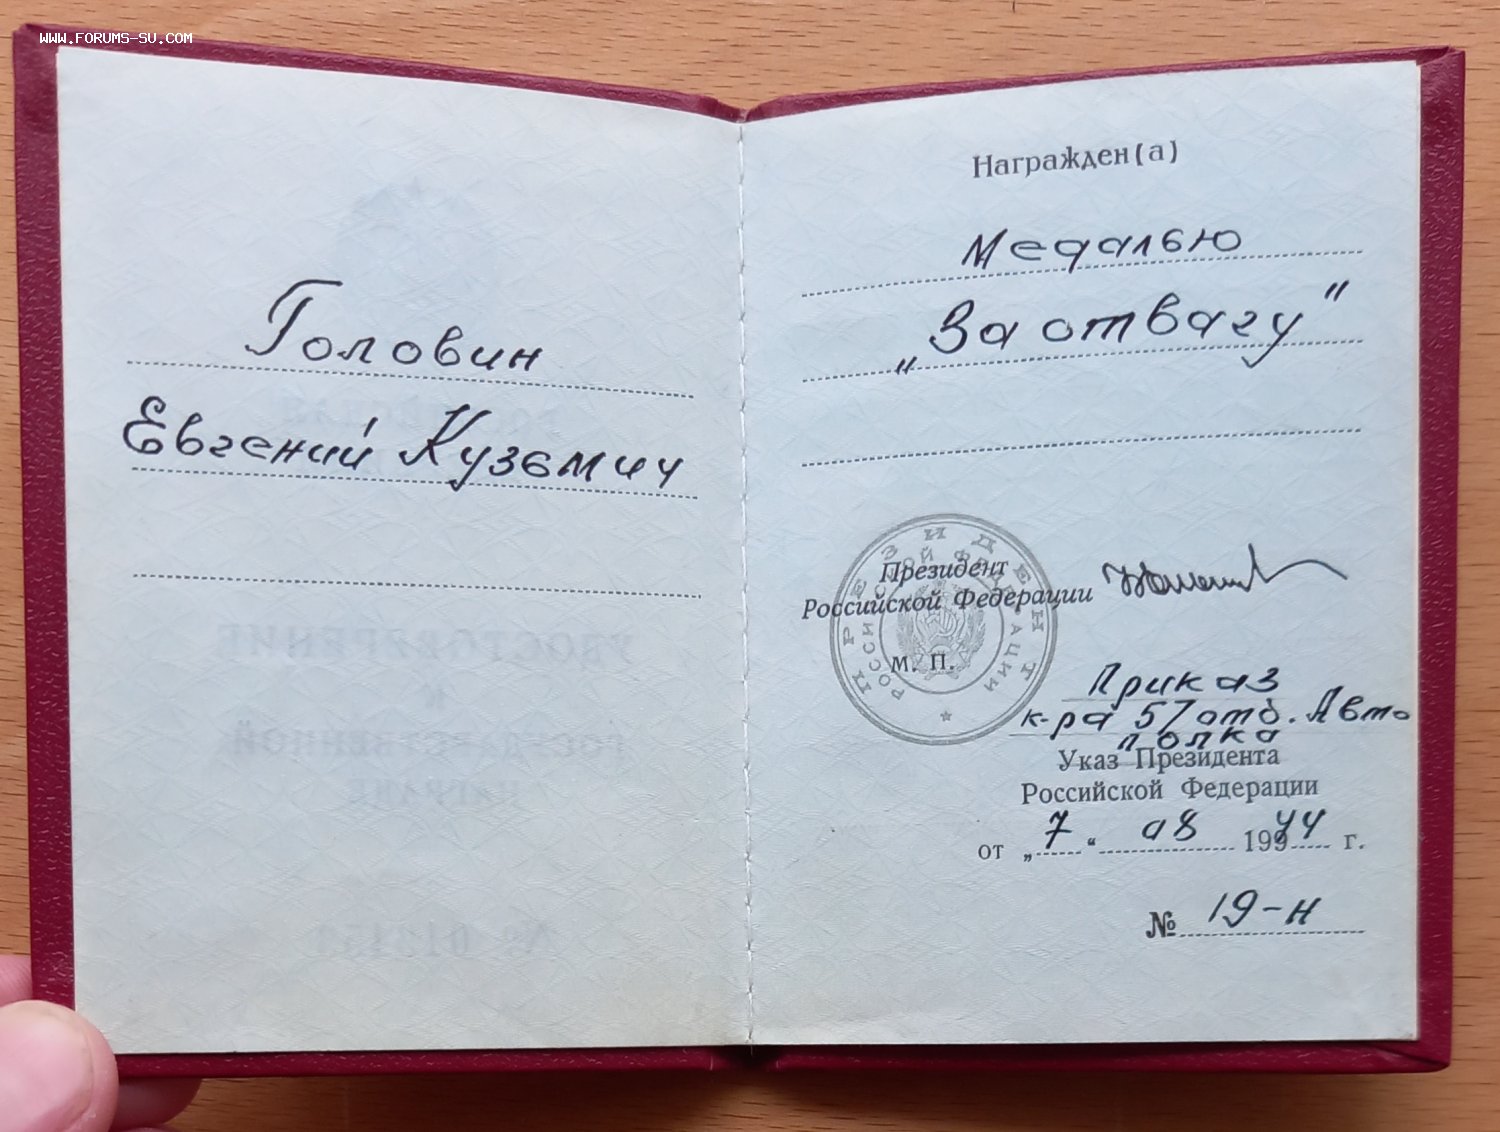 WWW.FORUMS-SU.COM
Головин
Евгений Кузьмич
Награжден(а)
Медалью
„За отвагу"
ПРЕЗИДЕНТ
РОССИЙСКОЙ ФЕДЕРАЦИИ
Президент
Российской Федерации
М. П.
Приказ
к-ра 57 отд. Авто
полка
Указ Президента
Российской Федерации
от „7" 08 1944 г.
№ 19-н